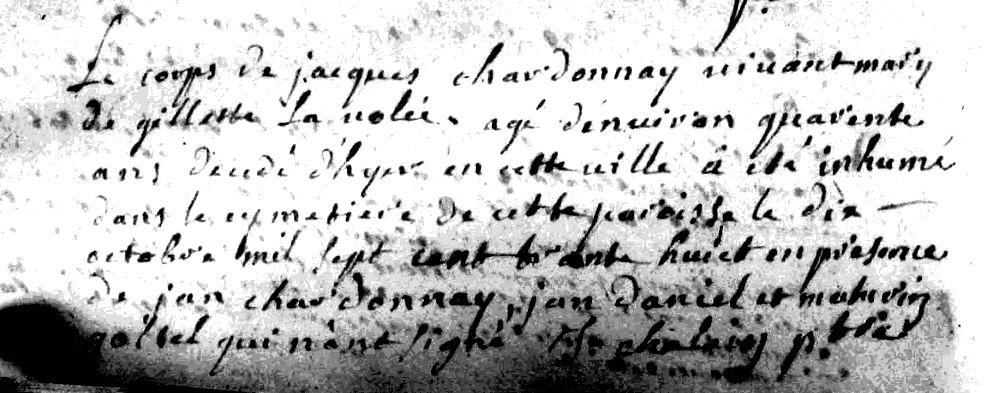 Le corps de jacques chardonnay vivant mary
de gillette La volée. agé denviron quarente
ans décédé d'hyer en cette ville à été inhumé
dans le cymetiere de cette paroisse le dix
octobre mil sept cent trante huict en presence
de jan chardonnay, jan daniel et maturin
qui n'ont signé